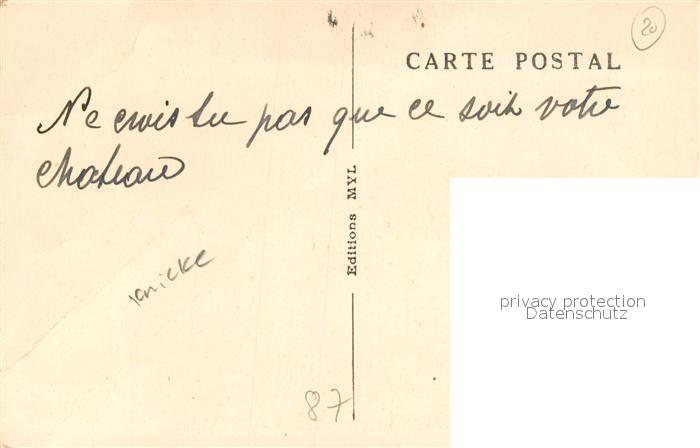 20
CARTE POSTAL
Ne crois tu pas que ce soit votre
chateau
Editions MYL
knicke
privacy protection
Datenschutz
87